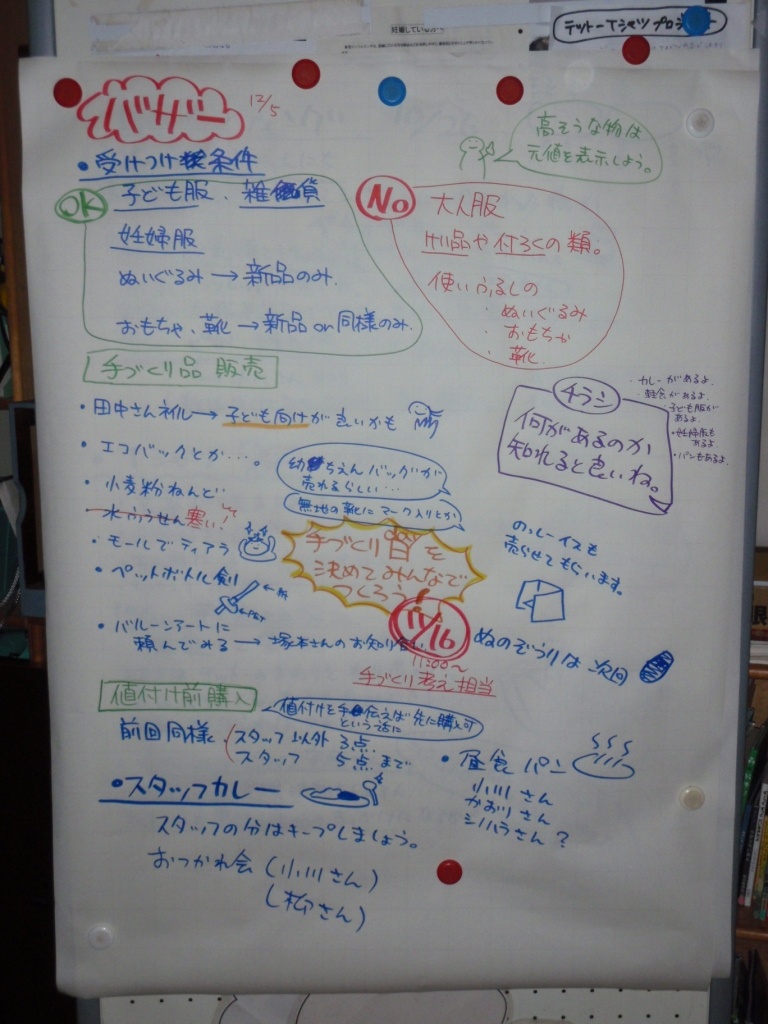 テットーTシャツプロジ
妊娠しているから
バザー
12/5
高そうな物は
元値を表示しよう。
・受けつけ条件
OK
子ども服、雑貨
妊婦服
ぬいぐるみ → 新品のみ.
おもちゃ、靴 → 新品or同様のみ.
No
大人服
けい品や付ろくの類。
使いふるしの
・ぬいぐるみ
・おもちゃ
・靴
手づくり品 販売
・田中さんネイル → 子ども向けが良いかも
・エコバックとか…。
幼ちえんバッグが
売れるらしい…
・小麦粉ねんど
無地の靴にマーク入りとか
水ふうせん 寒い!
・モールでティアラ
・ペットボトル剣
手づくり日を
決めてみんなで
つくろう!
11/16
11:00〜
手づくり考え担当
・バルーンアートに
頼んでみる → 塚本さんのお知り合い
チラシ
何があるのか
知れると良いね。
・カレーがあるよ
・軽食があるよ.
・子ども服が
あるよ
・妊婦服も
あるよ
・パンもあるよ.
売らせてもらいます。
ぬのぞうりは次回
値付け前購入
値付けを手伝えば先に購入可
という話に
前回同様、スタッフ以外 3点.
スタッフ 5点まで
・昼食 パン
小川さん
かおりさん
シハラさん?
・スタッフカレー
スタッフの分はキープしましょう。
おつかれ会(小川さん)
(柳さん)